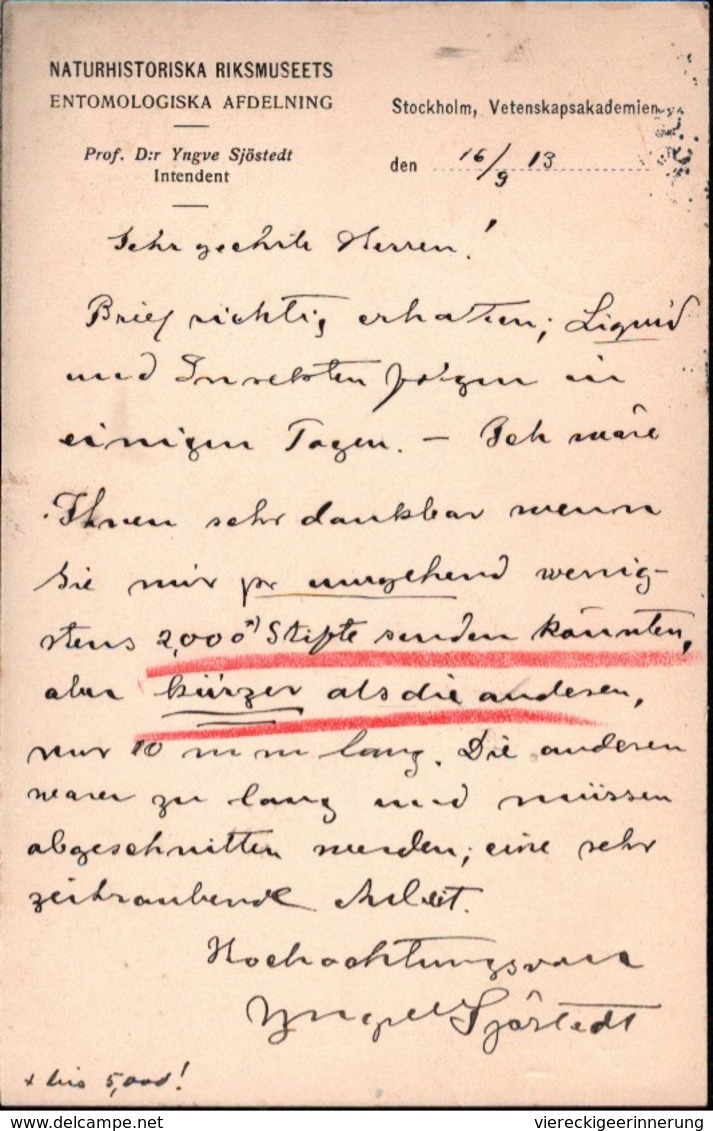 NATURHISTORISKA RIKSMUSEETS
ENTOMOLOGISKA AFDELNING
Prof. D:r Yngve Sjöstedt
Intendent
Stockholm, Vetenskapsakademien
den 16/9 13
Sehr geehrte Herren!
Brief richtig erhalten; Liquid
und Insekten folgen in
einigen Tagen. — Ich wäre
Ihnen sehr dankbar wenn
Sie mir pr umgehend wenig-
stens 2,000 x) Stifte senden könnten,
aber kürzer als die anderen,
nur 10 mm lang. Die anderen
waren zu lang und müssen
abgeschnitten werden; eine sehr
zeitraubende Arbeit.
Hochachtungsvoll
Yngve Sjöstedt
x bis 5,000!
delcampe.net
viereckigeerinnerung